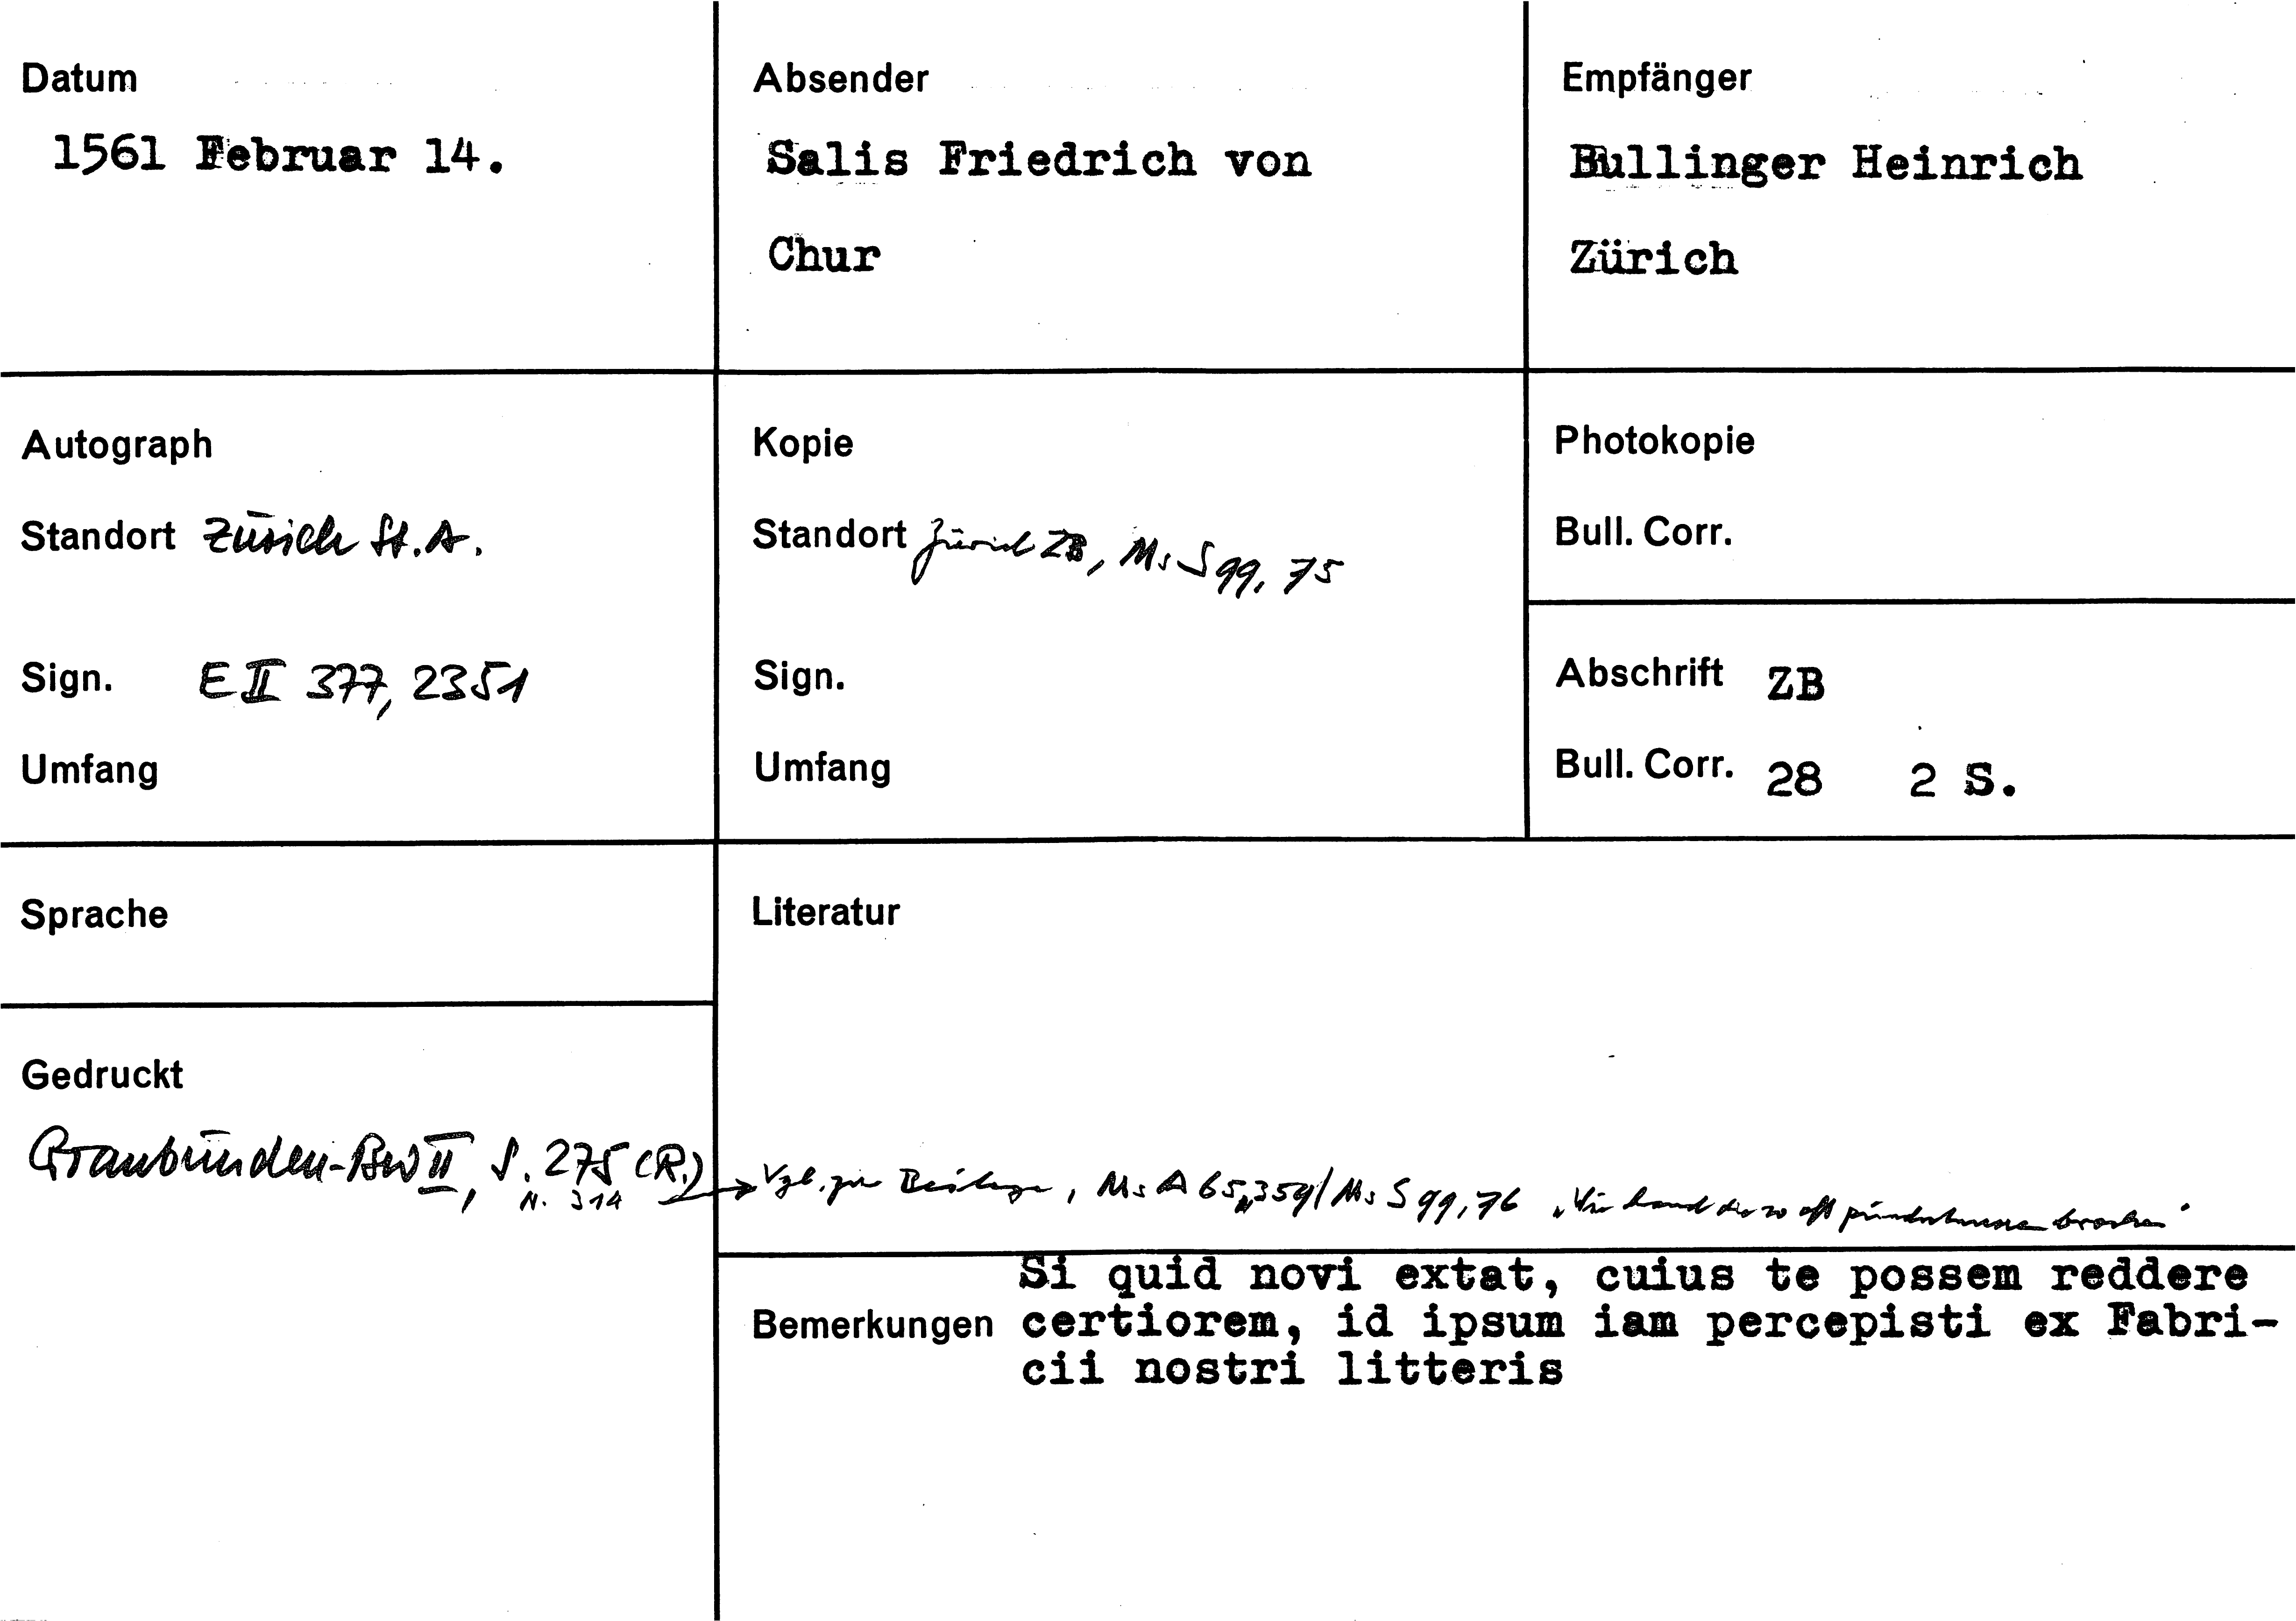 Datum
1561 Februar 14.
Absender
Salis Friedrich von
Chur
Empfänger
Bullinger Heinrich
Zürich
Autograph
Standort Zürich St.A.
Sign. E II 377, 2351
Umfang
Kopie
Standort Zürich ZB, Ms S 99, 75
Sign.
Umfang
Photokopie
Bull. Corr.
Abschrift ZB
Bull. Corr. 28 2 S.
Sprache
Gedruckt
Graubünden-BW II, S. 275 (R.)
N. 314
Literatur
Vgl. zur Beilage, Ms A 65, 359 / Ms S 99, 76 so oft
Bemerkungen
Si quid novi extat, cuius te possem reddere
certiorem, id ipsum iam percepisti ex Fabri-
cii nostri litteris